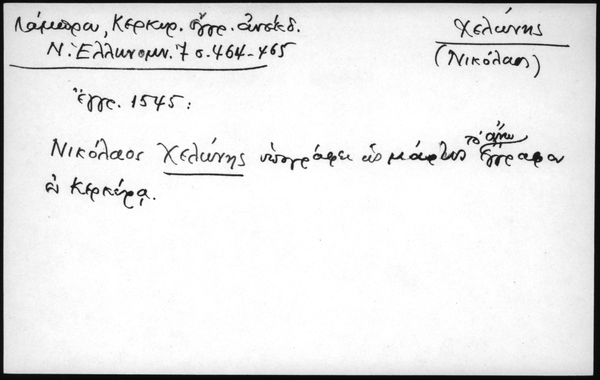 Λάμπρου, Κερκυρ. ἔγγρ. ἀνέκδ.
Ν. Ἑλληνομν. 7 σ. 464-465
Χελώνης
(Νικόλαος)
Ἔγγρ. 1545:
Νικόλαος Χελώνης ὑπογράφει ὡς μάρτυς τὸ ἄνω ἔγγραφον
ἐν Κερκύρᾳ.